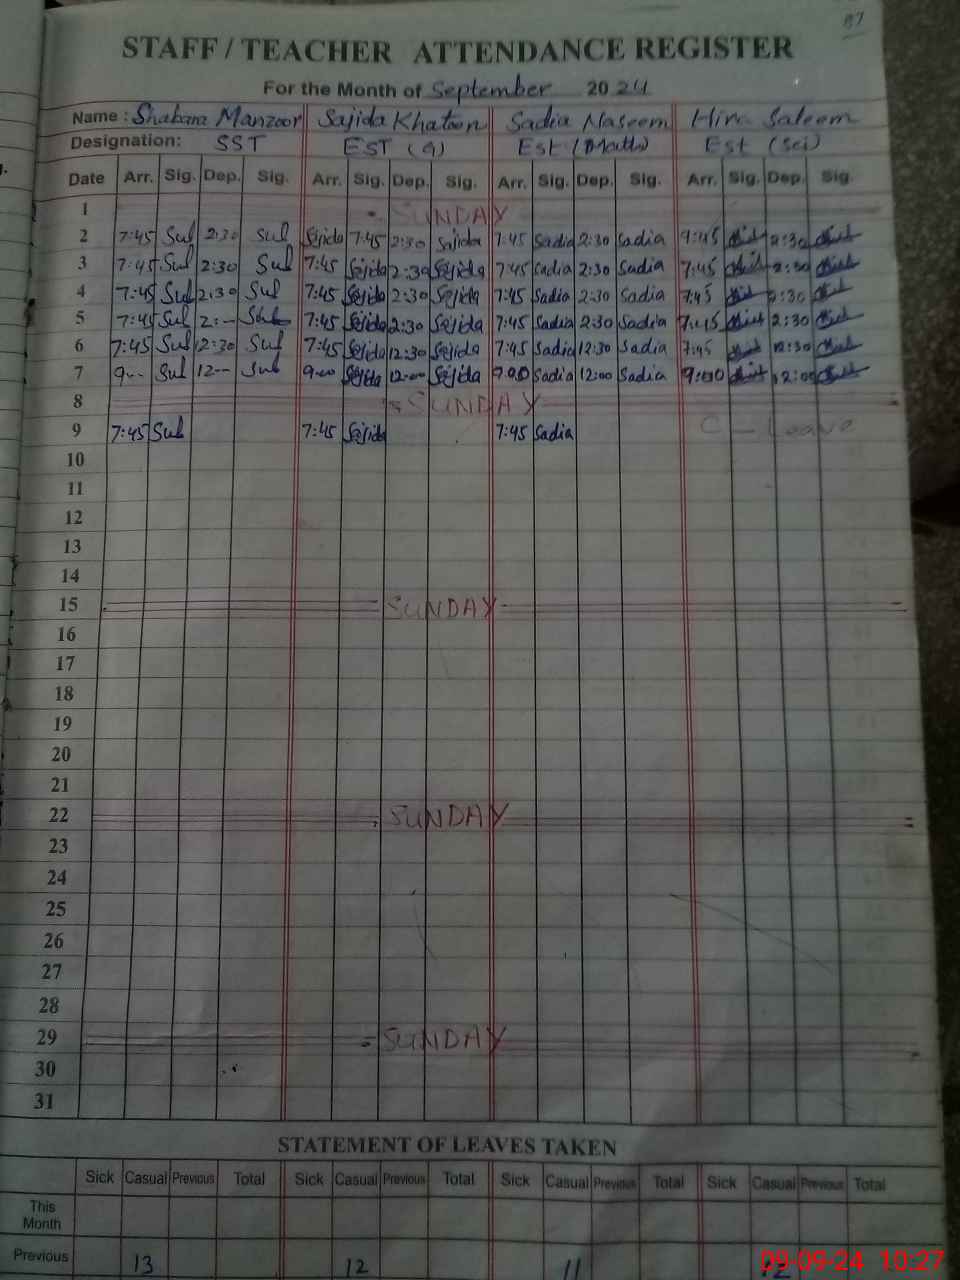 37
STAFF / TEACHER ATTENDANCE REGISTER
For the Month of September 2024
Name : Shabana Manzoor Sajida Khatoon Sadia Naseem Hira Saleem
Designation: SST EST (G) Est (Math) Est (Sci)
Date Arr. Sig. Dep. Sig. Arr. Sig. Dep. Sig. Arr. Sig. Dep. Sig. Arr. Sig. Dep. Sig.
1 SUNDAY
2 7:45 2:30 Sajida 7:45 2:30 Sajida 7:45 Sadia 2:30 Sadia 2:30
3 7:45 2:30 7:45 Sajida 2:30 Sajida 7:45 Sadia 2:30 Sadia 7:45 2:30
4 7:45 2:30 7:45 Sajida 2:30 Sajida 7:45 Sadia 2:30 Sadia 7:45 2:30
5 7:45 2:-- 7:45 Sajida 2:30 Sajida 7:45 Sadia 2:30 Sadia 2:30
6 7:45 12:30 7:45 Sajida 12:30 Sajida 7:45 Sadia 12:30 Sadia 7:45 12:30
7 9-- 12-- 9-00 Sajida 12-00 Sajida 9.00 Sadia 12:00 Sadia 9:00 12:00
8 SUNDAY
9 7:45 7:45 Sajida 7:45 Sadia C - Leave
10
11
12
13
14
15 SUNDAY
16
17
18
19
20
21
22 SUNDAY
23
24
25
26
27
28
29 SUNDAY
30
31
STATEMENT OF LEAVES TAKEN
Sick Casual Previous Total Sick Casual Previous Total Sick Casual Previous Total Sick Casual Previous Total
This Month
Previous 13 12 11
09-09-24 10:27